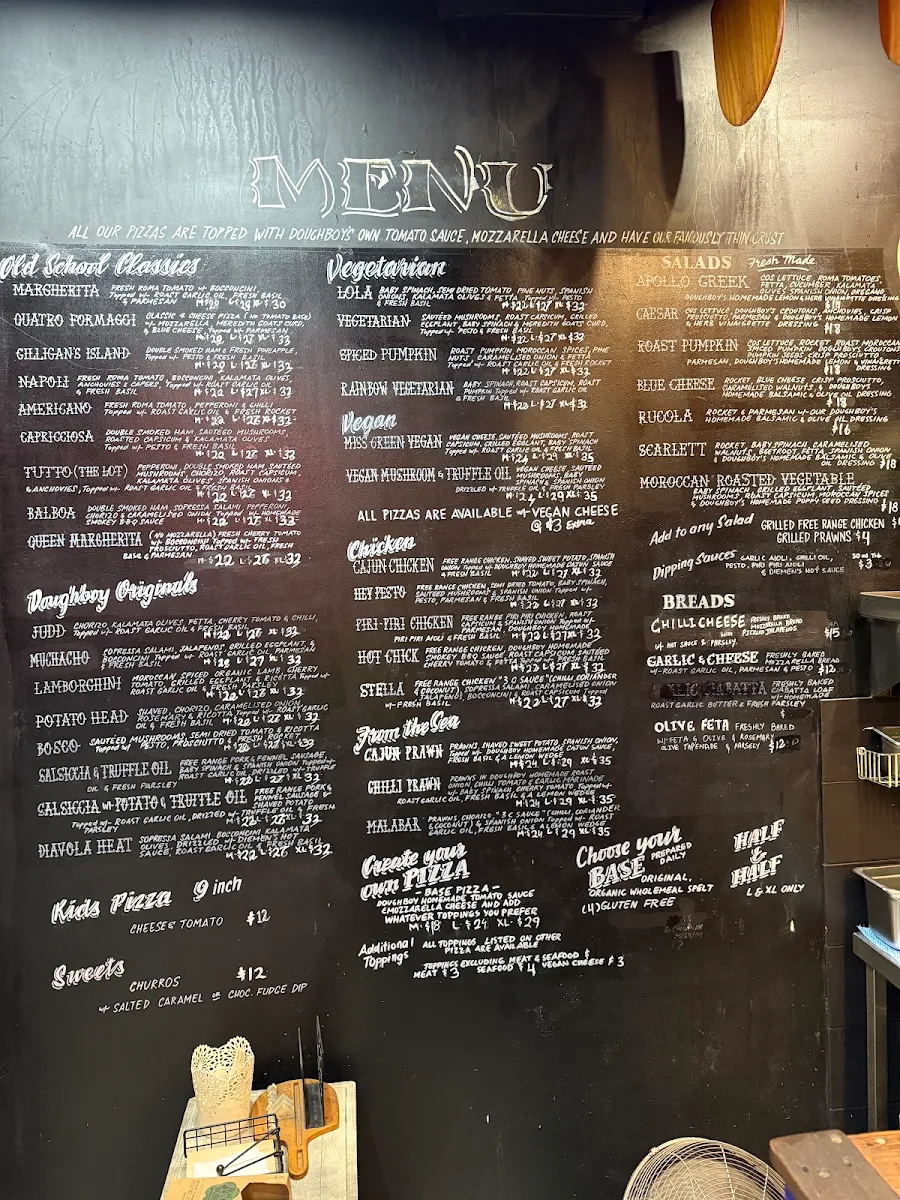 MENU
ALL OUR PIZZAS ARE TOPPED WITH DOUGHBOYS' OWN TOMATO SAUCE, MOZZARELLA CHEESE AND HAVE OUR FAMOUSLY THIN CRUST
Old School Classics
MARGHERITA FRESH ROMA TOMATO w- BOCCONCINI
Topped w- ROAST GARLIC OIL, FRESH BASIL
& PARMESAN
QUATRO FORMAGGI CLASSIC 4 CHEESE PIZZA (NO TOMATO BASE)
w- MOZZARELLA, MEREDITH GOATS CURD,
& BLUE CHEESE, Topped w- PARMESAN
GILLIGAN'S ISLAND DOUBLE SMOKED HAM & FRESH PINEAPPLE,
Topped w- PESTO & FRESH BASIL
NAPOLI FRESH ROMA TOMATO, BOCCONCINI, KALAMATA OLIVES,
ANCHOVIES & CAPERS, Topped w- ROAST GARLIC OIL
& FRESH BASIL M-$22 L-$27 XL-$32
AMERICANO FRESH ROMA TOMATO, PEPPERONI & CHILLI,
Topped w- ROAST GARLIC OIL & FRESH ROCKET
CAPRICCIOSA DOUBLE SMOKED HAM, SAUTÉED MUSHROOMS,
ROASTED CAPSICUM & KALAMATA OLIVES
Topped w- PESTO & FRESH BASIL
TUTTO (THE LOT) PEPPERONI, DOUBLE SMOKED HAM, SAUTÉED
MUSHROOMS, CHORIZO, ROAST CAPSICUM,
KALAMATA OLIVES, SPANISH ONIONS &
& ANCHOVIES, Topped w- ROAST GARLIC OIL & FRESH BASIL
BALBOA DOUBLE SMOKED HAM, SOPRESSA SALAMI, PEPPERONI,
CHORIZO & CARAMELISED ONION Topped w- HOMEMADE
SMOKEY BBQ SAUCE
QUEEN MARGHERITA (NO MOZZARELLA) FRESH CHERRY TOMATO
w- BOCCONCINI Topped w- FRESH
PROSCIUTTO, ROAST GARLIC OIL, FRESH
BASIL & PARMESAN
Doughboy Originals
JUDD CHORIZO, KALAMATA OLIVES, FETTA, CHERRY TOMATO & CHILLI,
Topped w- ROAST GARLIC OIL & FRESH BASIL
MUCHACHO SOPRESSA SALAMI, JALAPENOS, GRILLED EGGPLANT, &
BOCCONCINI Topped w- ROAST GARLIC OIL, PARMESAN
& FRESH BASIL
LAMBORGHINI MOROCCAN SPICED ORGANIC LAMB, CHERRY
TOMATO, GRILLED EGGPLANT & RICOTTA Topped w-
ROAST GARLIC OIL & FRESH PARSLEY
POTATO HEAD SHAVED, CHORIZO, CARAMELISED ONION,
ROSEMARY & RICOTTA Topped w- ROAST GARLIC
OIL & FRESH BASIL
BOSCO SAUTÉED MUSHROOMS, SEMI DRIED TOMATO & RICOTTA
Topped w- PESTO, PROSCIUTTO & FRESH ROCKET
SALSICCIA & TRUFFLE OIL FREE RANGE PORK & FENNEL SAUSAGE,
BABY SPINACH & SPANISH ONION Topped w-
ROAST GARLIC OIL, DRIZZLED w- TRUFFLE
OIL & FRESH PARSLEY
SALSICCIA w- POTATO & TRUFFLE OIL FREE RANGE PORK &
FENNEL SAUSAGE &
SHAVED POTATO
Topped w- ROAST GARLIC OIL, DRIZZLED w- TRUFFLE OIL & FRESH
PARSLEY
DIAVOLA HEAT SOPRESSA SALAMI, BOCCONCINI, KALAMATA
OLIVES, DRIZZLED w- DIEMEN'S HOT
SAUCE, ROAST GARLIC OIL & FRESH BASIL
Kids Pizza 9 inch
CHEESE & TOMATO $12
Sweets
CHURROS $12
w- SALTED CARAMEL or CHOC. FUDGE DIP
Vegetarian
LOLA BABY SPINACH, SEMI DRIED TOMATO, PINE NUTS, SPANISH
ONIONS, KALAMATA OLIVES & FETTA Topped w- PESTO
& FRESH BASIL M-$22 L-$27 XL-$32
VEGETARIAN SAUTÉED MUSHROOMS, ROAST CAPSICUM, GRILLED
EGGPLANT, BABY SPINACH & MEREDITH GOATS CURD,
Topped w- PESTO & FRESH BASIL
M-$22 L-$27 XL-$32
SPICED PUMPKIN ROAST PUMPKIN, MOROCCAN SPICES, PINE
NUTS, CARAMELISED ONION & FETTA
Topped w- ROAST GARLIC OIL & FRESH ROCKET
M-$22 L-$27 XL-$32
RAINBOW VEGETARIAN BABY SPINACH, ROAST CAPSICUM, ROAST
PUMPKIN Topped w- ROAST GARLIC OIL
& FRESH BASIL
M-$22 L-$27 XL-$32
Vegan
MISS GREEN VEGAN VEGAN CHEESE, SAUTÉED MUSHROOMS, ROAST
CAPSICUM, GRILLED EGGPLANT, BABY SPINACH
Topped w- ROAST GARLIC OIL & FRESH BASIL
M-$24 L-$29 XL-$35
VEGAN MUSHROOM & TRUFFLE OIL VEGAN CHEESE, SAUTÉED
MUSHROOMS, BABY
SPINACH & SPANISH ONION
DRIZZLED w- TRUFFLE OIL & FRESH PARSLEY
M-$24 L-$29 XL-$35
ALL PIZZAS ARE AVAILABLE w- VEGAN CHEESE
@ $3 Extra
Chicken
CAJUN CHICKEN FREE RANGE CHICKEN, SHAVED SWEET POTATO, SPANISH
ONION Topped w- DOUGHBOY HOMEMADE CAJUN SAUCE
& FRESH BASIL M-$22 L-$27 XL-$32
HEY PESTO FREE RANGE CHICKEN, SEMI DRIED TOMATO, BABY SPINACH,
SAUTÉED MUSHROOMS & SPANISH ONION Topped w-
PESTO, PARMESAN & FRESH BASIL
M-$22 L-$27 XL-$32
PIRI-PIRI CHICKEN FREE RANGE PIRI PIRI CHICKEN, ROAST
CAPSICUM & SPANISH ONION
Topped w- DOUGHBOY HOMEMADE
PIRI PIRI AIOLI & FRESH BASIL
M-$22 L-$27 XL-$32
HOT CHICK FREE RANGE CHICKEN, DOUGHBOY HOMEMADE
SMOKEY BBQ SAUCE, ROAST CAPSICUM, SAUTÉED
CHERRY TOMATO
M-$22 L-$27 XL-$32
STELLA FREE RANGE CHICKEN "3 C SAUCE" (CHILLI, CORIANDER
& COCONUT), SOPRESSA SALAMI, CARAMELISED ONION
JALAPENOS, BOCCONCINI & ROAST CAPSICUM Topped
w- FRESH BASIL M-$22 L-$27 XL-$32
From the Sea
CAJUN PRAWN PRAWNS, SHAVED SWEET POTATO, SPANISH ONION,
Topped w- DOUGHBOY HOMEMADE CAJUN SAUCE,
FRESH BASIL & A LEMON WEDGE
M-$24 L-$29 XL-$35
CHILLI PRAWN PRAWNS IN DOUGHBOY HOMEMADE ROAST
ONION, CHILLI TOMATO & GARLIC MARINADE
w- CHERRY TOMATO Topped w-
ROAST GARLIC OIL, FRESH BASIL & A LEMON WEDGE
M-$24 L-$29 XL-$35
MALABAR PRAWNS, CHORIZO, "3 C SAUCE" (CHILLI, CORIANDER
& COCONUT) & SPANISH ONION Topped w- ROAST
GARLIC OIL, FRESH BASIL & A LEMON WEDGE
M-$24 L-$29 XL-$35
Create your
own PIZZA
- BASE PIZZA -
DOUGHBOY HOMEMADE TOMATO SAUCE
& MOZZARELLA CHEESE AND ADD
WHATEVER TOPPINGS YOU PREFER
M-$18 L-$24 XL-$29
Additional Toppings
ALL TOPPINGS LISTED ON OTHER
PIZZA ARE AVAILABLE
TOPPINGS EXCLUDING MEAT & SEAFOOD $
MEAT $3 SEAFOOD $4 VEGAN CHEESE $3
Choose your
BASE PREPARED
DAILY
ORIGINAL,
ORGANIC WHOLEMEAL SPELT
GLUTEN FREE
HALF
&
HALF
L & XL ONLY
SALADS Fresh Made
APOLLO GREEK COS LETTUCE, ROMA TOMATOES
FETTA, CUCUMBER, KALAMATA
OLIVES, SPANISH ONION, OREGANO
DOUGHBOY'S HOMEMADE LEMON & HERB VINAIGRETTE DRESSING
$18
CAESAR COS LETTUCE, DOUGHBOY'S CROUTONS, ANCHOVIES, CRISP
PROSCIUTTO, PARMESAN & DOUGHBOY'S HOMEMADE LEMON
& HERB VINAIGRETTE DRESSING
$18
ROAST PUMPKIN COS LETTUCE, ROAST MOROCCAN
SPICED PUMPKIN, DOUGHBOY'S CROUTONS
PUMPKIN SEEDS, CRISP PROSCIUTTO
PARMESAN, DOUGHBOY'S HOMEMADE LEMON & VINAIGRETTE
$18 DRESSING
BLUE CHEESE ROCKET, BLUE CHEESE, CRISP PROSCIUTTO,
CARAMELISED WALNUTS & DOUGHBOY'S
HOMEMADE BALSAMIC & OLIVE OIL DRESSING
$18
RUCOLA ROCKET & PARMESAN w- OUR DOUGHBOY'S
HOMEMADE BALSAMIC & OLIVE OIL DRESSING
$16
SCARLETT ROCKET, BABY SPINACH, CARAMELISED
WALNUTS, BEETROOT, FETTA, SPANISH ONION
& DOUGHBOY'S HOMEMADE BALSAMIC & OLIVE
OIL DRESSING $18
MOROCCAN ROASTED VEGETABLE
BABY SPINACH, GRILLED EGGPLANT, SAUTÉED
MUSHROOMS, ROAST CAPSICUM, MOROCCAN SPICES
& DOUGHBOY'S HOMEMADE POPPY SEED DRESSING
$18
Add to any Salad GRILLED FREE RANGE CHICKEN
GRILLED PRAWNS $4
Dipping Sauces GARLIC AIOLI, CHILLI OIL,
PESTO, PIRI PIRI AIOLI
& DIEMEN'S HOT SAUCE $3
BREADS
CHILLI CHEESE FRESHLY BAKED
MOZZARELLA BREAD
WITH PICKLED JALAPENOS
w- HOT SAUCE & PARSLEY $15
GARLIC & CHEESE FRESHLY BAKED
MOZZARELLA BREAD
w- ROAST GARLIC OIL, PARMESAN & PESTO $12
GARLIC CIABATTA FRESHLY BAKED
CIABATTA LOAF
w- HOMEMADE
ROAST GARLIC BUTTER & FRESH PARSLEY
OLIVE FETA FRESHLY BAKED
w- FETA & OLIVE & ROSEMARY
OLIVE TAPENADE & PARSLEY